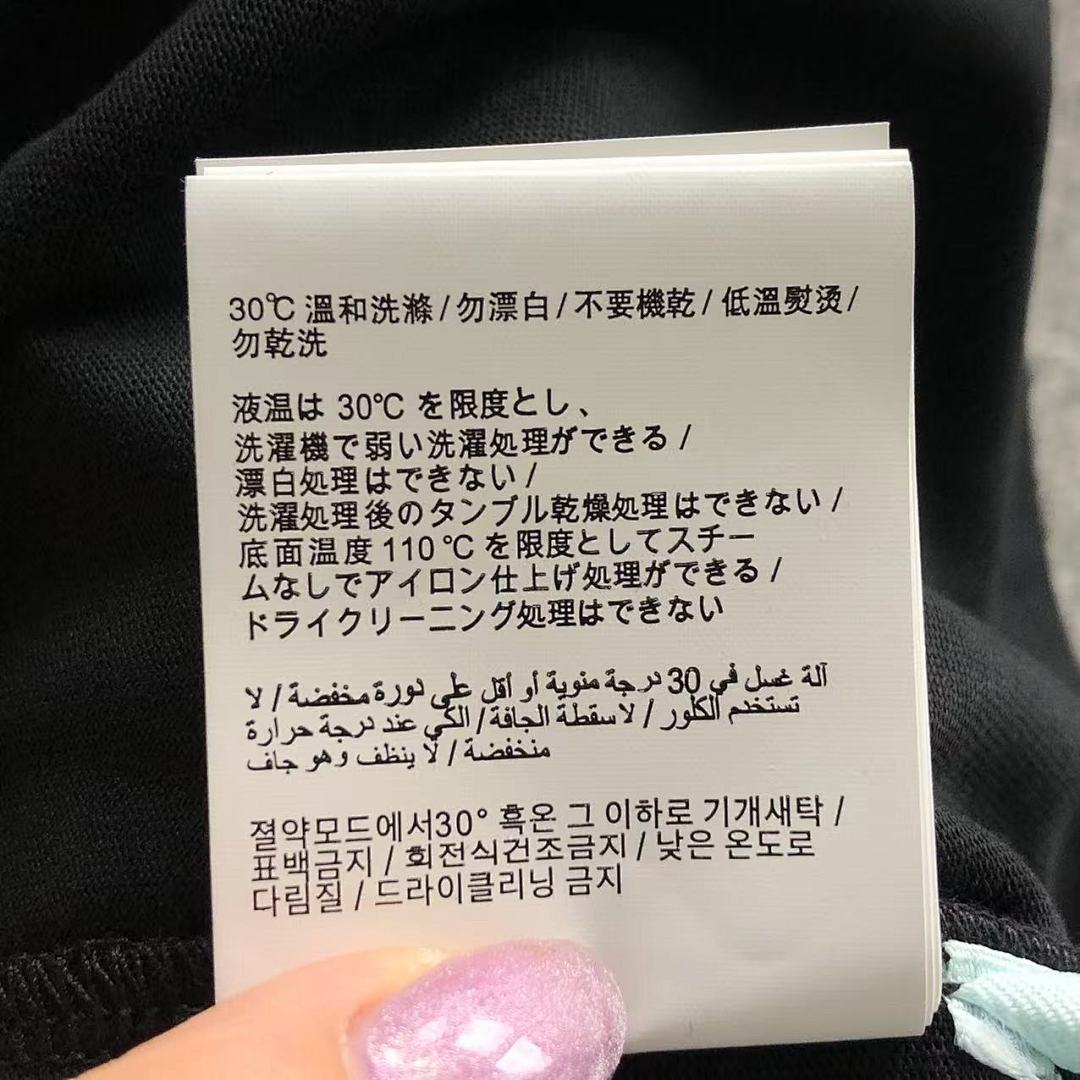 30℃ 溫和洗滌/勿漂白/不要機乾/低溫熨燙/
勿乾洗
液温は 30℃ を限度とし、
洗濯機で弱い洗濯処理ができる /
漂白処理はできない /
洗濯処理後のタンブル乾燥処理はできない /
底面温度 110 ℃ を限度としてスチー
ムなしでアイロン仕上げ処理ができる /
ドライクリーニング処理はできない
آلة غسل في 30 درجة منوية أو أقل على دورة مخفضة / لا
تستخدم الكلور / لاسقطة الجافة / الكي عند درجة حرارة
منخفضة / لا ينظف وهو جاف
졀약모드에서30° 혹온 그 이하로 기개새탁 /
표백금지 / 회전식건조금지 / 낮은 온도로
다림질 / 드라이클리닝 금지